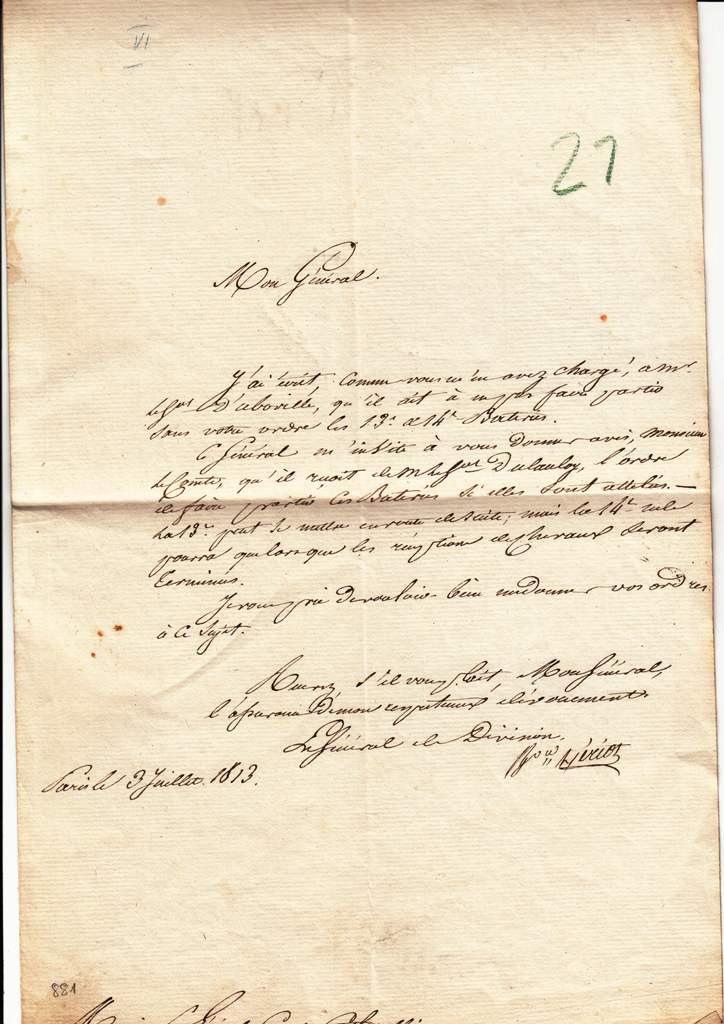 VI
27
Mon Général.
J'ai écrit, comme vous m'en avez chargé, a Mr.
le Gal D'aboville, qu'il ait à ne pas faire partir
sans votre ordre les 13e. et 14e. Batteries.
Ce Général m'invite à vous donner avis, Monsieur
le Comte, qu'il reçoit de M le Gal Dulauloy, l'ordre
de faire partir ces Batteries si elles sont attelées. —
La 13e. peut se mettre en route de suite; mais la 14e. ne le
pourra que lorsque les réceptions de chevaux seront
terminées.
Je vous prie de vouloir bien me donner vos ordres
à ce sujet.
Recevez s'il vous plait, Mon Général,
l'assurance de mon respectueux dévouement.
Le Général de Division,
Bon
Paris le 3 Juillet 1813.
881